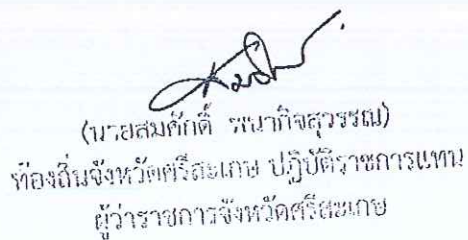 (นายสมศักดิ์ กิจสุวรรณ)
ท้องถิ่นจังหวัดศรีสะเกษ ปฏิบัติราชการแทน
ผู้ว่าราชการจังหวัดศรีสะเกษ